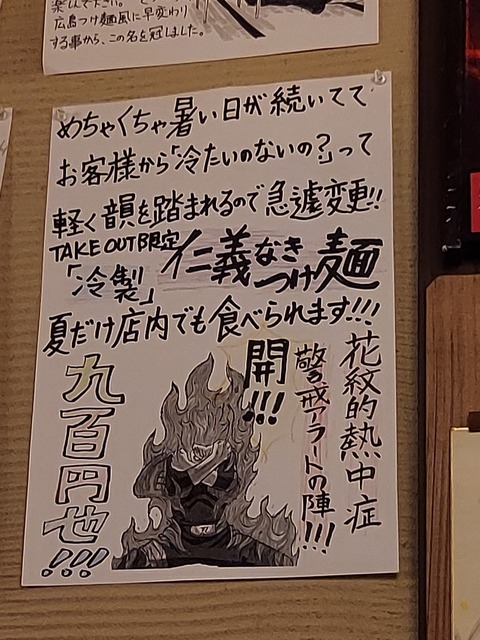 楽しんで下さい。
広島つけ麺風に早変わり
する事から、この名を冠しました。
めちゃくちゃ暑い日が続いてて
お客様から「冷たいのないの?」って
軽く韻を踏まれるので急遽変更!!
TAKE OUT限定
「冷製」仁義なき
つけ麺
夏だけ店内でも食べられます!!!
花紋的熱中症
警戒アラートの陣!!!
開!!!
九百円也!!!